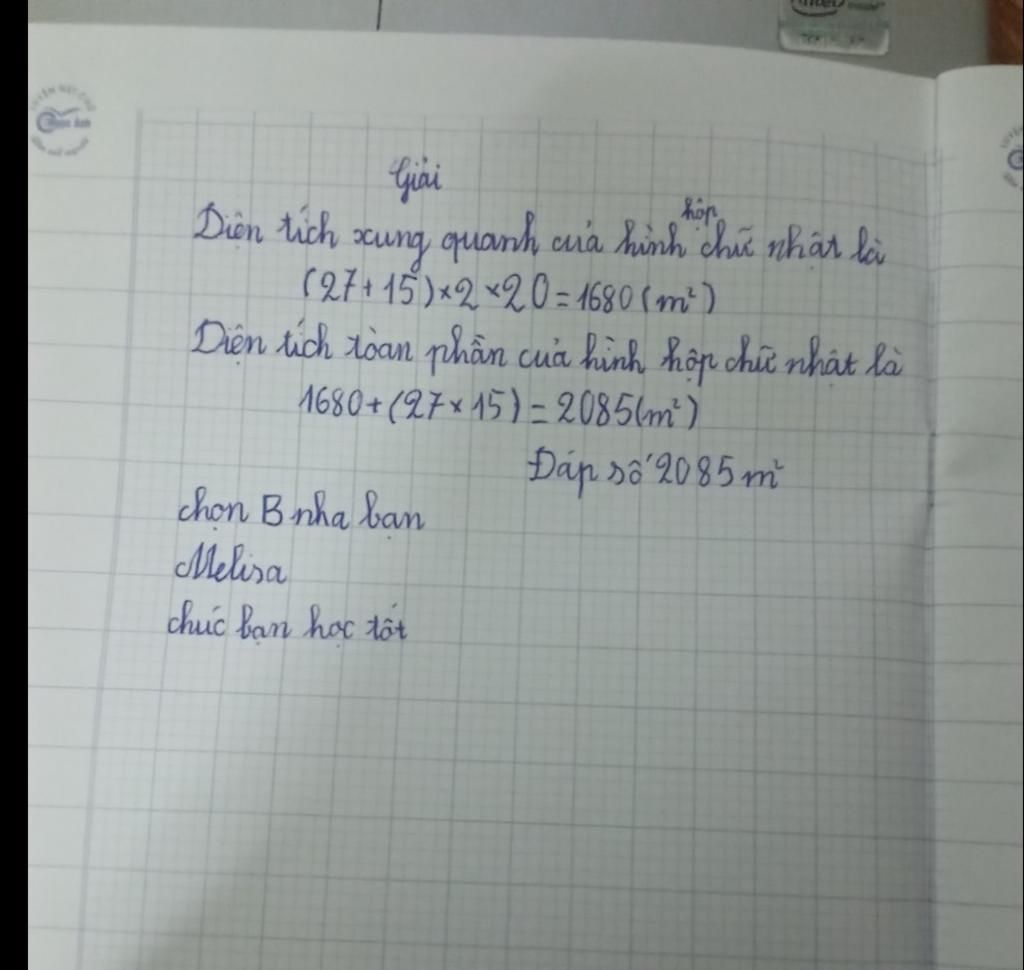 Giải
Diện tích xung quanh của hình hộp chữ nhật là
(27+15)×2×20=1680(m²)
Diện tích toàn phần của hình hộp chữ nhật là
1680+(27×15)=2085(m²)
Đáp số 2085m²
chọn B nha bạn
Melisa
chúc bạn học tốt